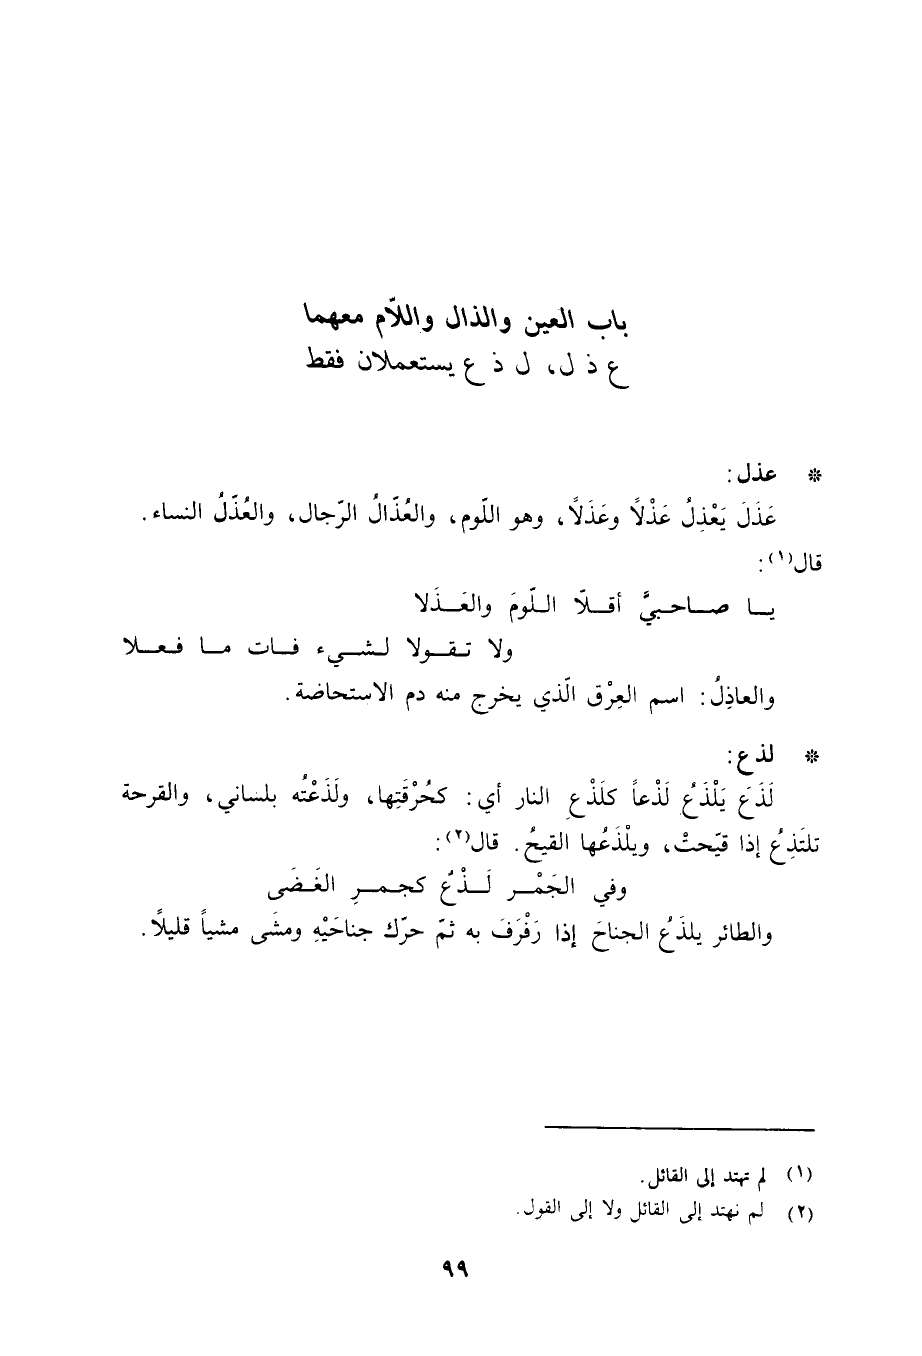 باب العين والذال واللاّم معهما
ع ذ ل، ل ذ ع يستعملان فقط
* عذل:
عَذَلَ يَعْذِلُ عَذْلاً وعَذَلاً، وهو اللّوم، والعُذّالُ الرّجال، والعُذّلُ النساء.
قال(١):
يـا صـاحـبيَّ أقـلّا الـلّومَ والعَـذَلا
ولا تـقـولا لـشـيء فـات مـا فـعـلا
والعاذِلُ: اسم العِرْق الّذي يخرج منه دم الاستحاضة.
* لذع:
لَذَعَ يَلْذَعُ لَذْعاً كلَذْعِ النار أي: كحُرْقَتِها، ولَذَعْتُه بلساني، والقرحة
تلتَذِعُ إذا قيّحتْ، ويلْذَعُها القيحُ. قال(٢):
وفي الجَمْـر لَـذْعٌ كجـمـرِ الغَـضَى
والطائر يلذَعُ الجناحَ إذا رَفْرَفَ به ثمّ حرّك جناحَيْهِ ومشَى مشياً قليلاً.
(١) لم نهتد إلى القائل.
(٢) لم نهتد إلى القائل ولا إلى القول.
٩٩